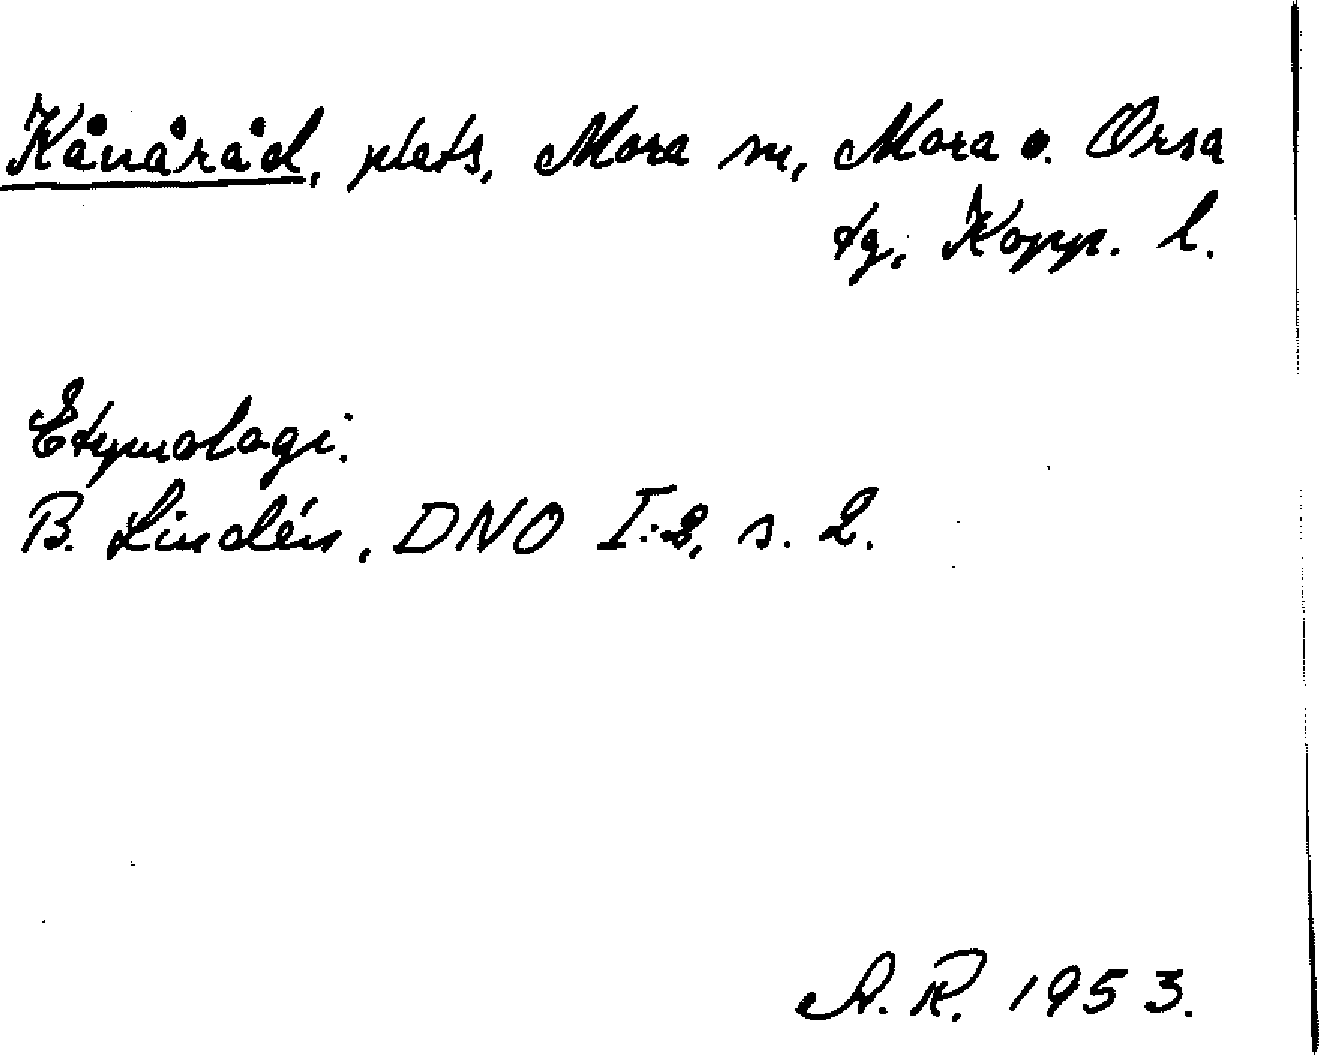 Kånåråd, plats, Mora sn, Mora o. Orsa
tg, Kopp. l.
Etymologi.
B. Lindén, DNO I:2, s. 2.
A. R. 1953.